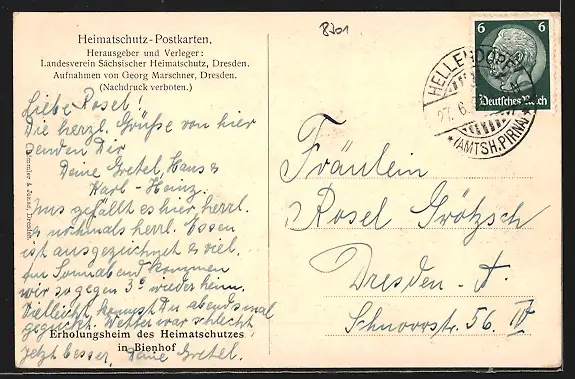 8201
Heimatschutz-Postkarten.
Herausgeber und Verleger:
Landesverein Sächsischer Heimatschutz, Dresden.
Aufnahmen von Georg Marschner, Dresden.
(Nachdruck verboten.)
Liebe Rosel!
Die herzl. Grüße von hier
senden Dir
Deine Gretel, Hans &
Karl-Heinz.
Uns gefällt es hier herrl.
& nochmals herrl. Essen
ist ausgezeichnet & viel.
Am Sonnabend kommen
wir so gegen 3° wieder heim.
Vielleicht kommst Du abends mal
Wetter war schlecht
jetzt besser. Deine Gretel.
Erholungsheim des Heimatschutzes
in Bienhof
Dresden
6 6
Deutsches Reich
HELLENDORF
27.6.
(AMTSH. PIRNA)
Fräulein
Rosel Grötzsch
Dresden-A.
Schnorrstr. 56. IV